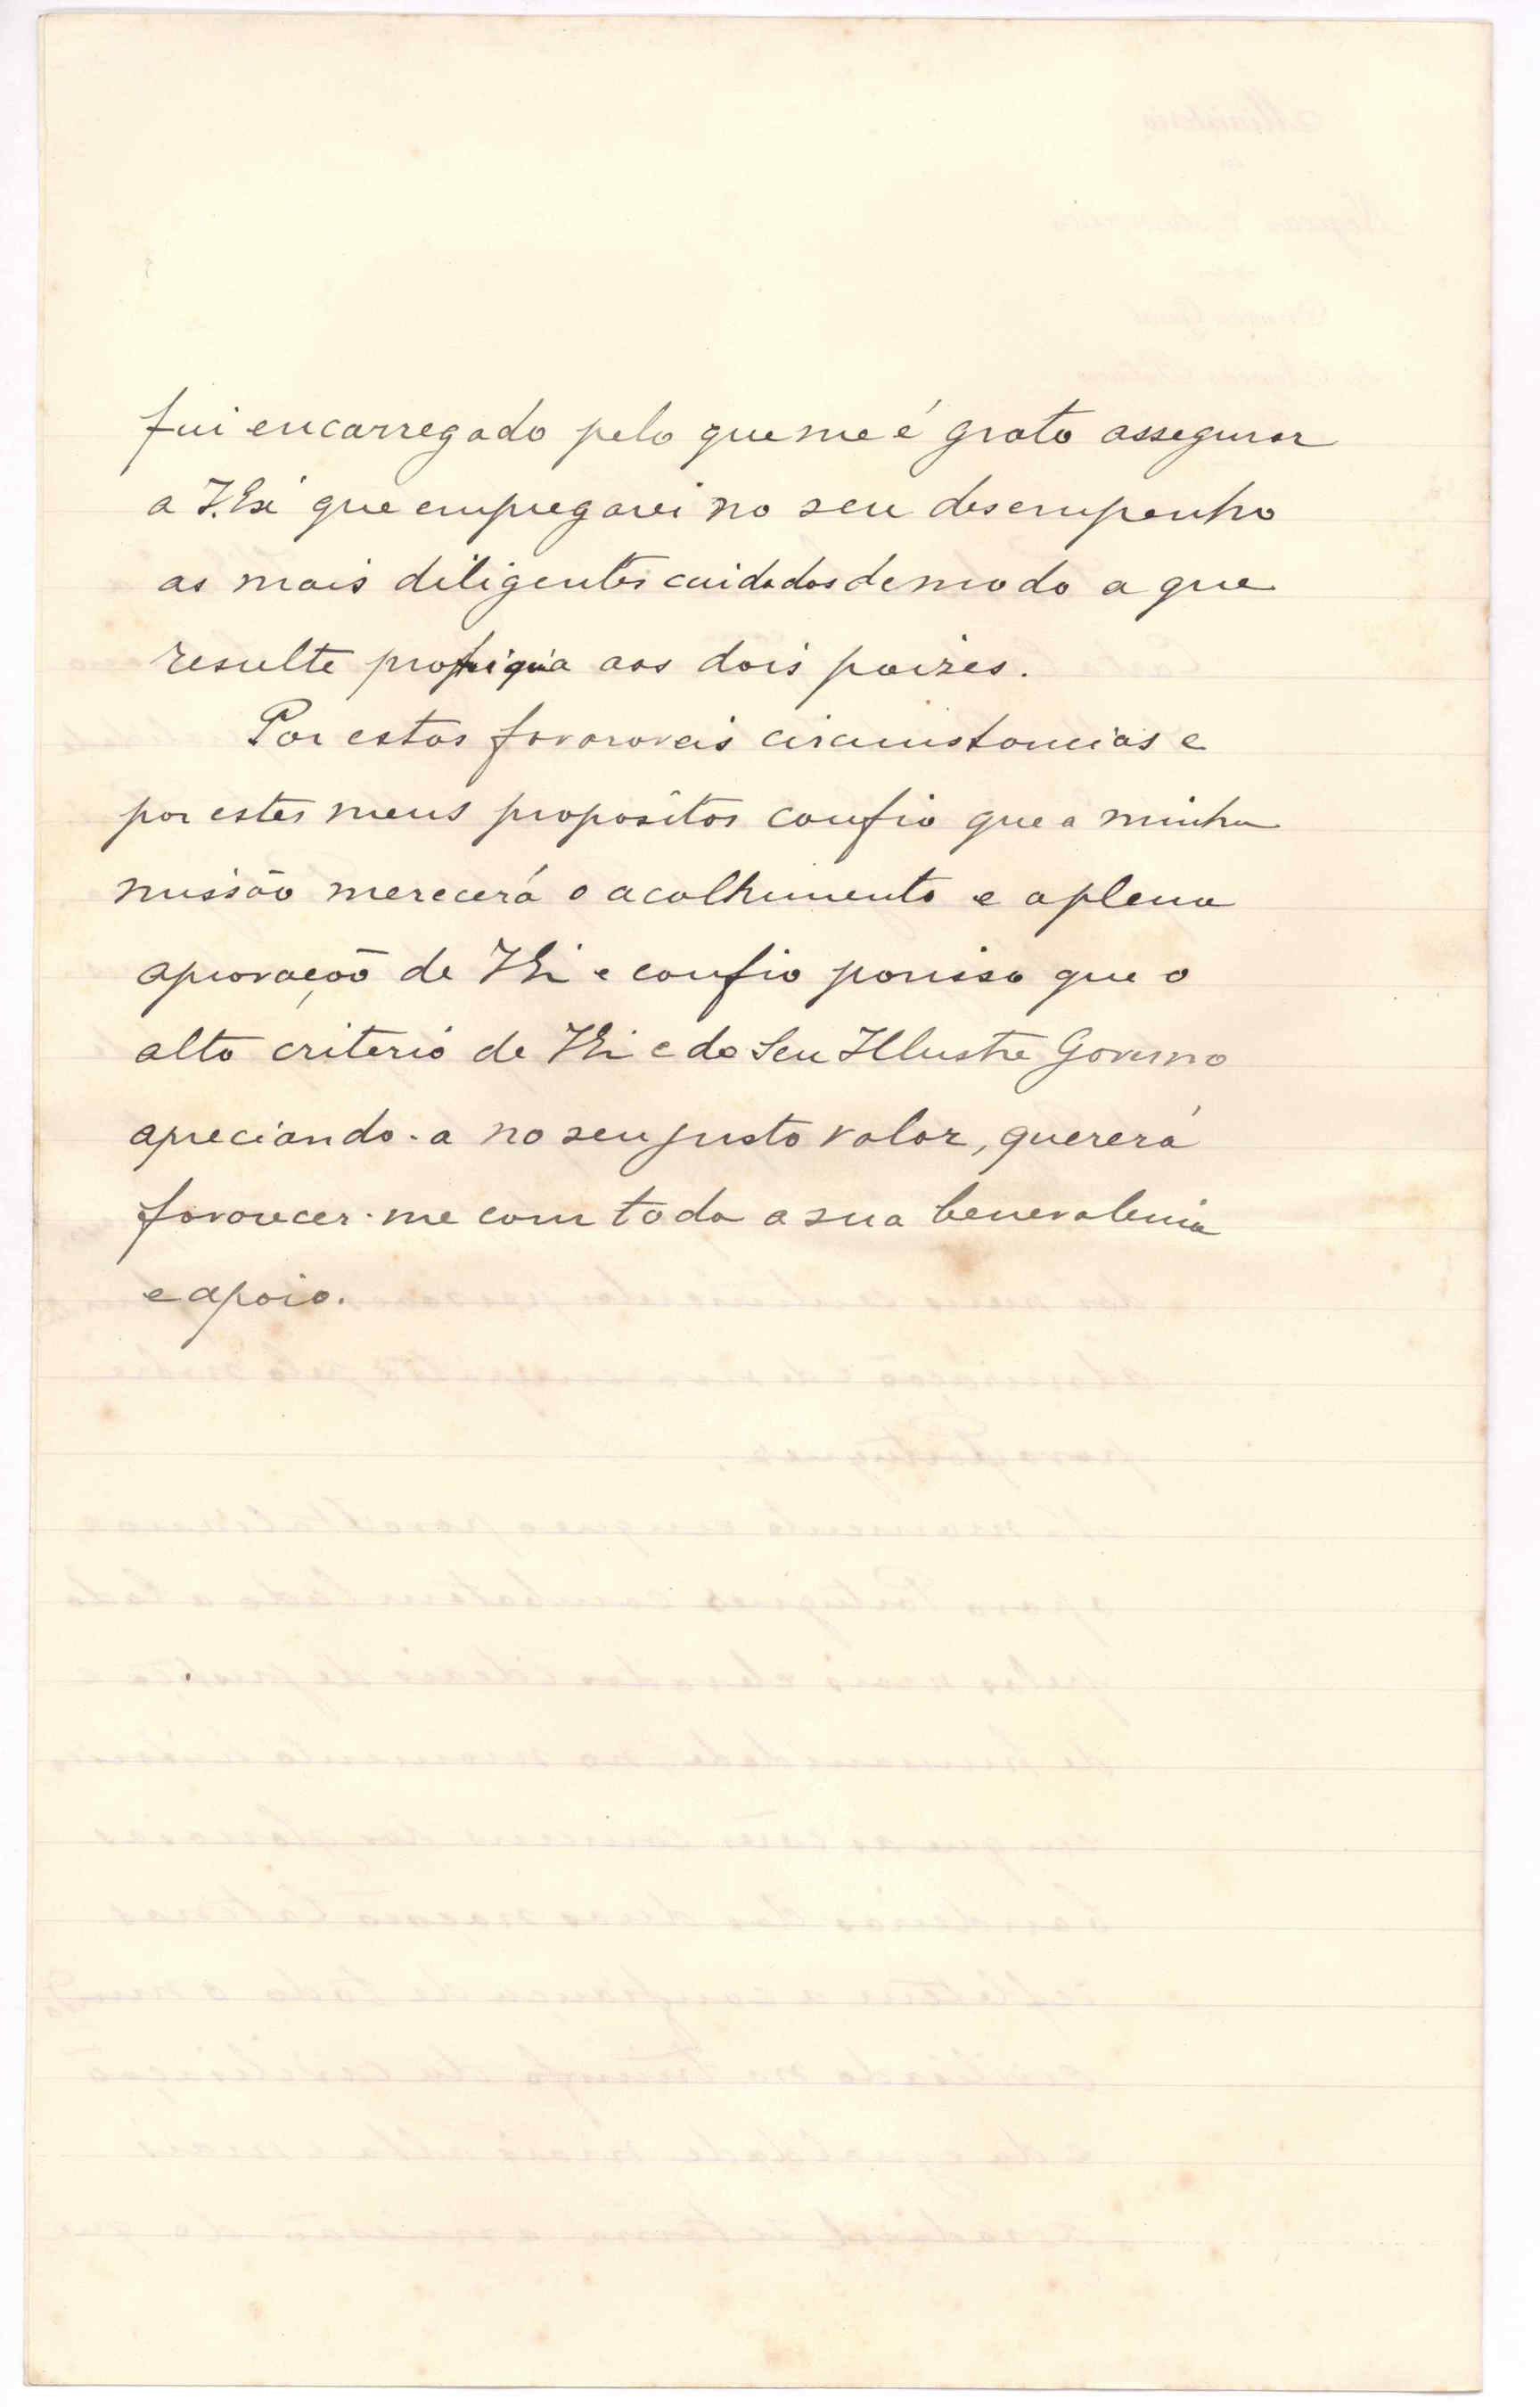 fui encarregado pelo que me é grato assegurar
a V. Exª que empregarei no seu desempenho
as mais diligentes cuidados de modo a que
resulte profiqua aos dois paizes.
Por estas favoraveis circumstancias e
por estes meus propositos confio que a minha
missão merecerá o acolhimento e a plena
aprovação de V Exª e confio porisso que o
alto criterio de V Exª e do Seu Illustre Governo
apreciando-a no seu justo valor, quererá
favorecer-me com toda a sua benevolencia
e apoio.